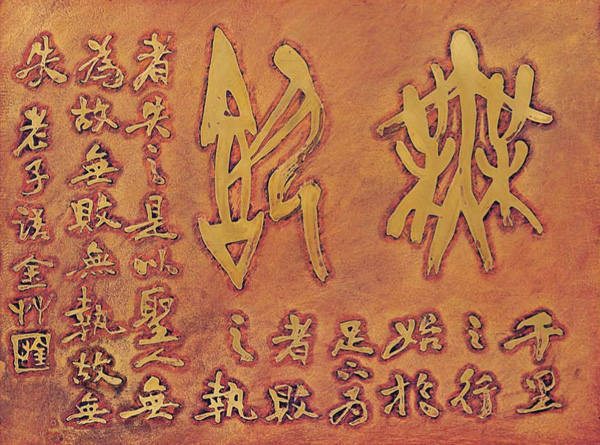 無敗
千里
之行
始於
足下為
者敗
之執
者失之是以聖人無
為故無敗無執故無
失 老子語 金艸